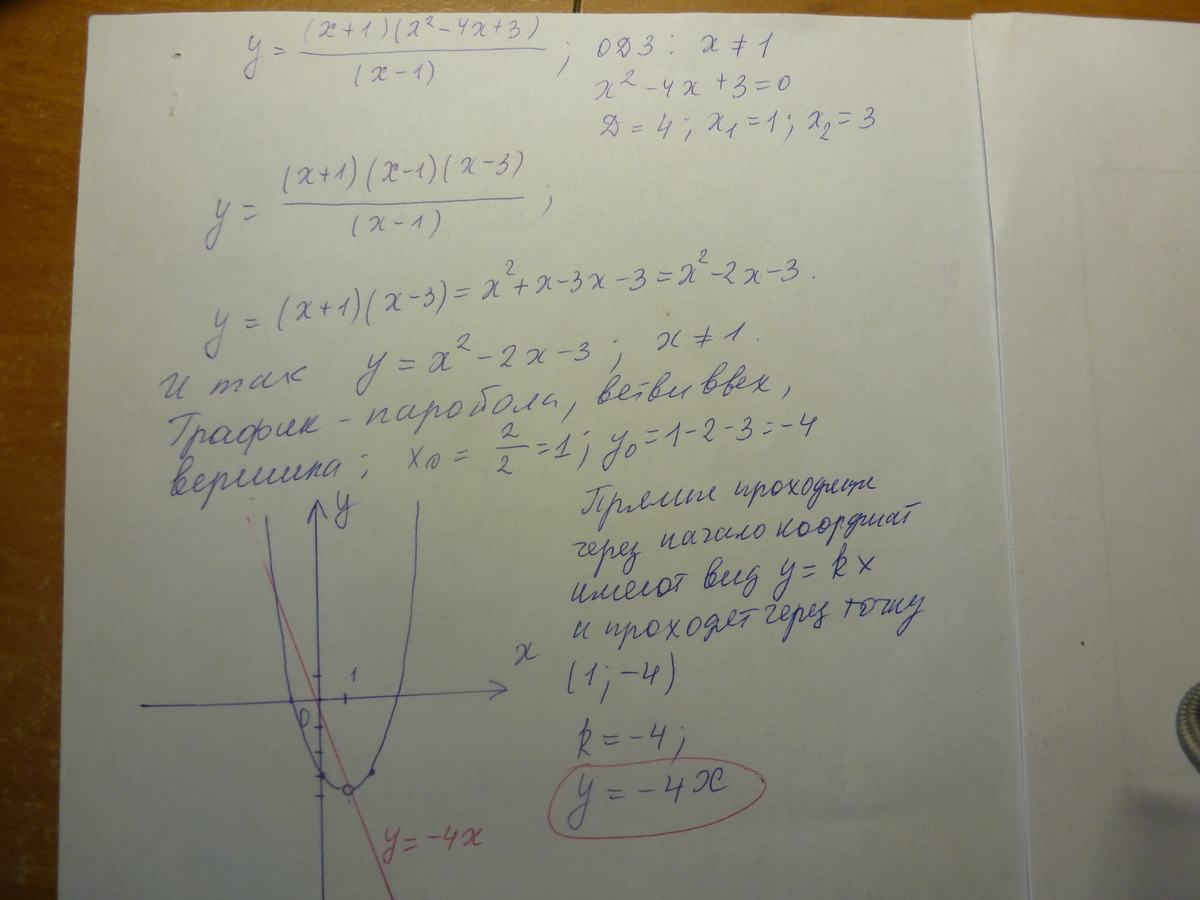 y = (x+1)(x²-4x+3) / (x-1) ; ОДЗ: x ≠ 1
x²-4x+3=0
Д = 4; x₁=1; x₂=3
y = (x+1)(x-1)(x-3) / (x-1) ;
y = (x+1)(x-3) = x²+x-3x-3 = x²-2x-3.
И так y = x²-2x-3; x ≠ 1.
График - паробола, ветви ввех,
вершина; x₀ = 2/2 = 1; y₀ = 1-2-3 = -4
y
x
1
0
y = -4x
Прямые проходящие
через начало координат
имеют вид y = kx
и проходят через точку
(1; -4)
k = -4;
y = -4x